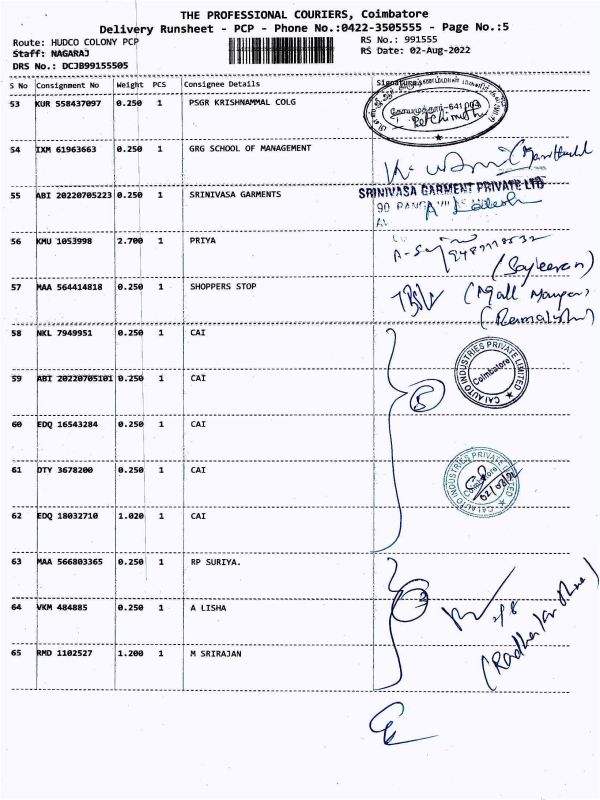 THE PROFESSIONAL COURIERS, Coimbatore
Delivery Runsheet - PCP - Phone No.:0422-3505555 - Page No.:5
Route: HUDCO COLONY PCP
RS No.: 991555
Staff: NAGARAJ
RS Date: 02-Aug-2022
DRS No.: DCJB99155505
S No Consignment No Weight PCS Consignee Details Signature
53 KUR 558437097 0.250 1 PSGR KRISHNAMMAL COLG
54 IXM 61963663 0.250 1 GRG SCHOOL OF MANAGEMENT
55 ABI 20220705223 0.250 1 SRINIVASA GARMENTS
SRINIVASA GARMENT PRIVATE LTD
56 KMU 1053998 2.700 1 PRIYA
57 MAA 564414818 0.250 1 SHOPPERS STOP
58 NKL 7949951 0.250 1 CAI
CAI AUTO INDUSTRIES PRIVATE LIMITED
Coimbatore
59 ABI 20220705101 0.250 1 CAI
5
60 EDQ 16543284 0.250 1 CAI
61 DTY 3678200 0.250 1 CAI
CAI AUTO INDUSTRIES PRIVATE LIMITED
Coimbatore
62 EDQ 18032710 1.020 1 CAI
63 MAA 566803365 0.250 1 RP SURIYA.
64 VKM 484885 0.250 1 A LISHA
65 RMD 1102527 1.200 1 M SRIRAJAN